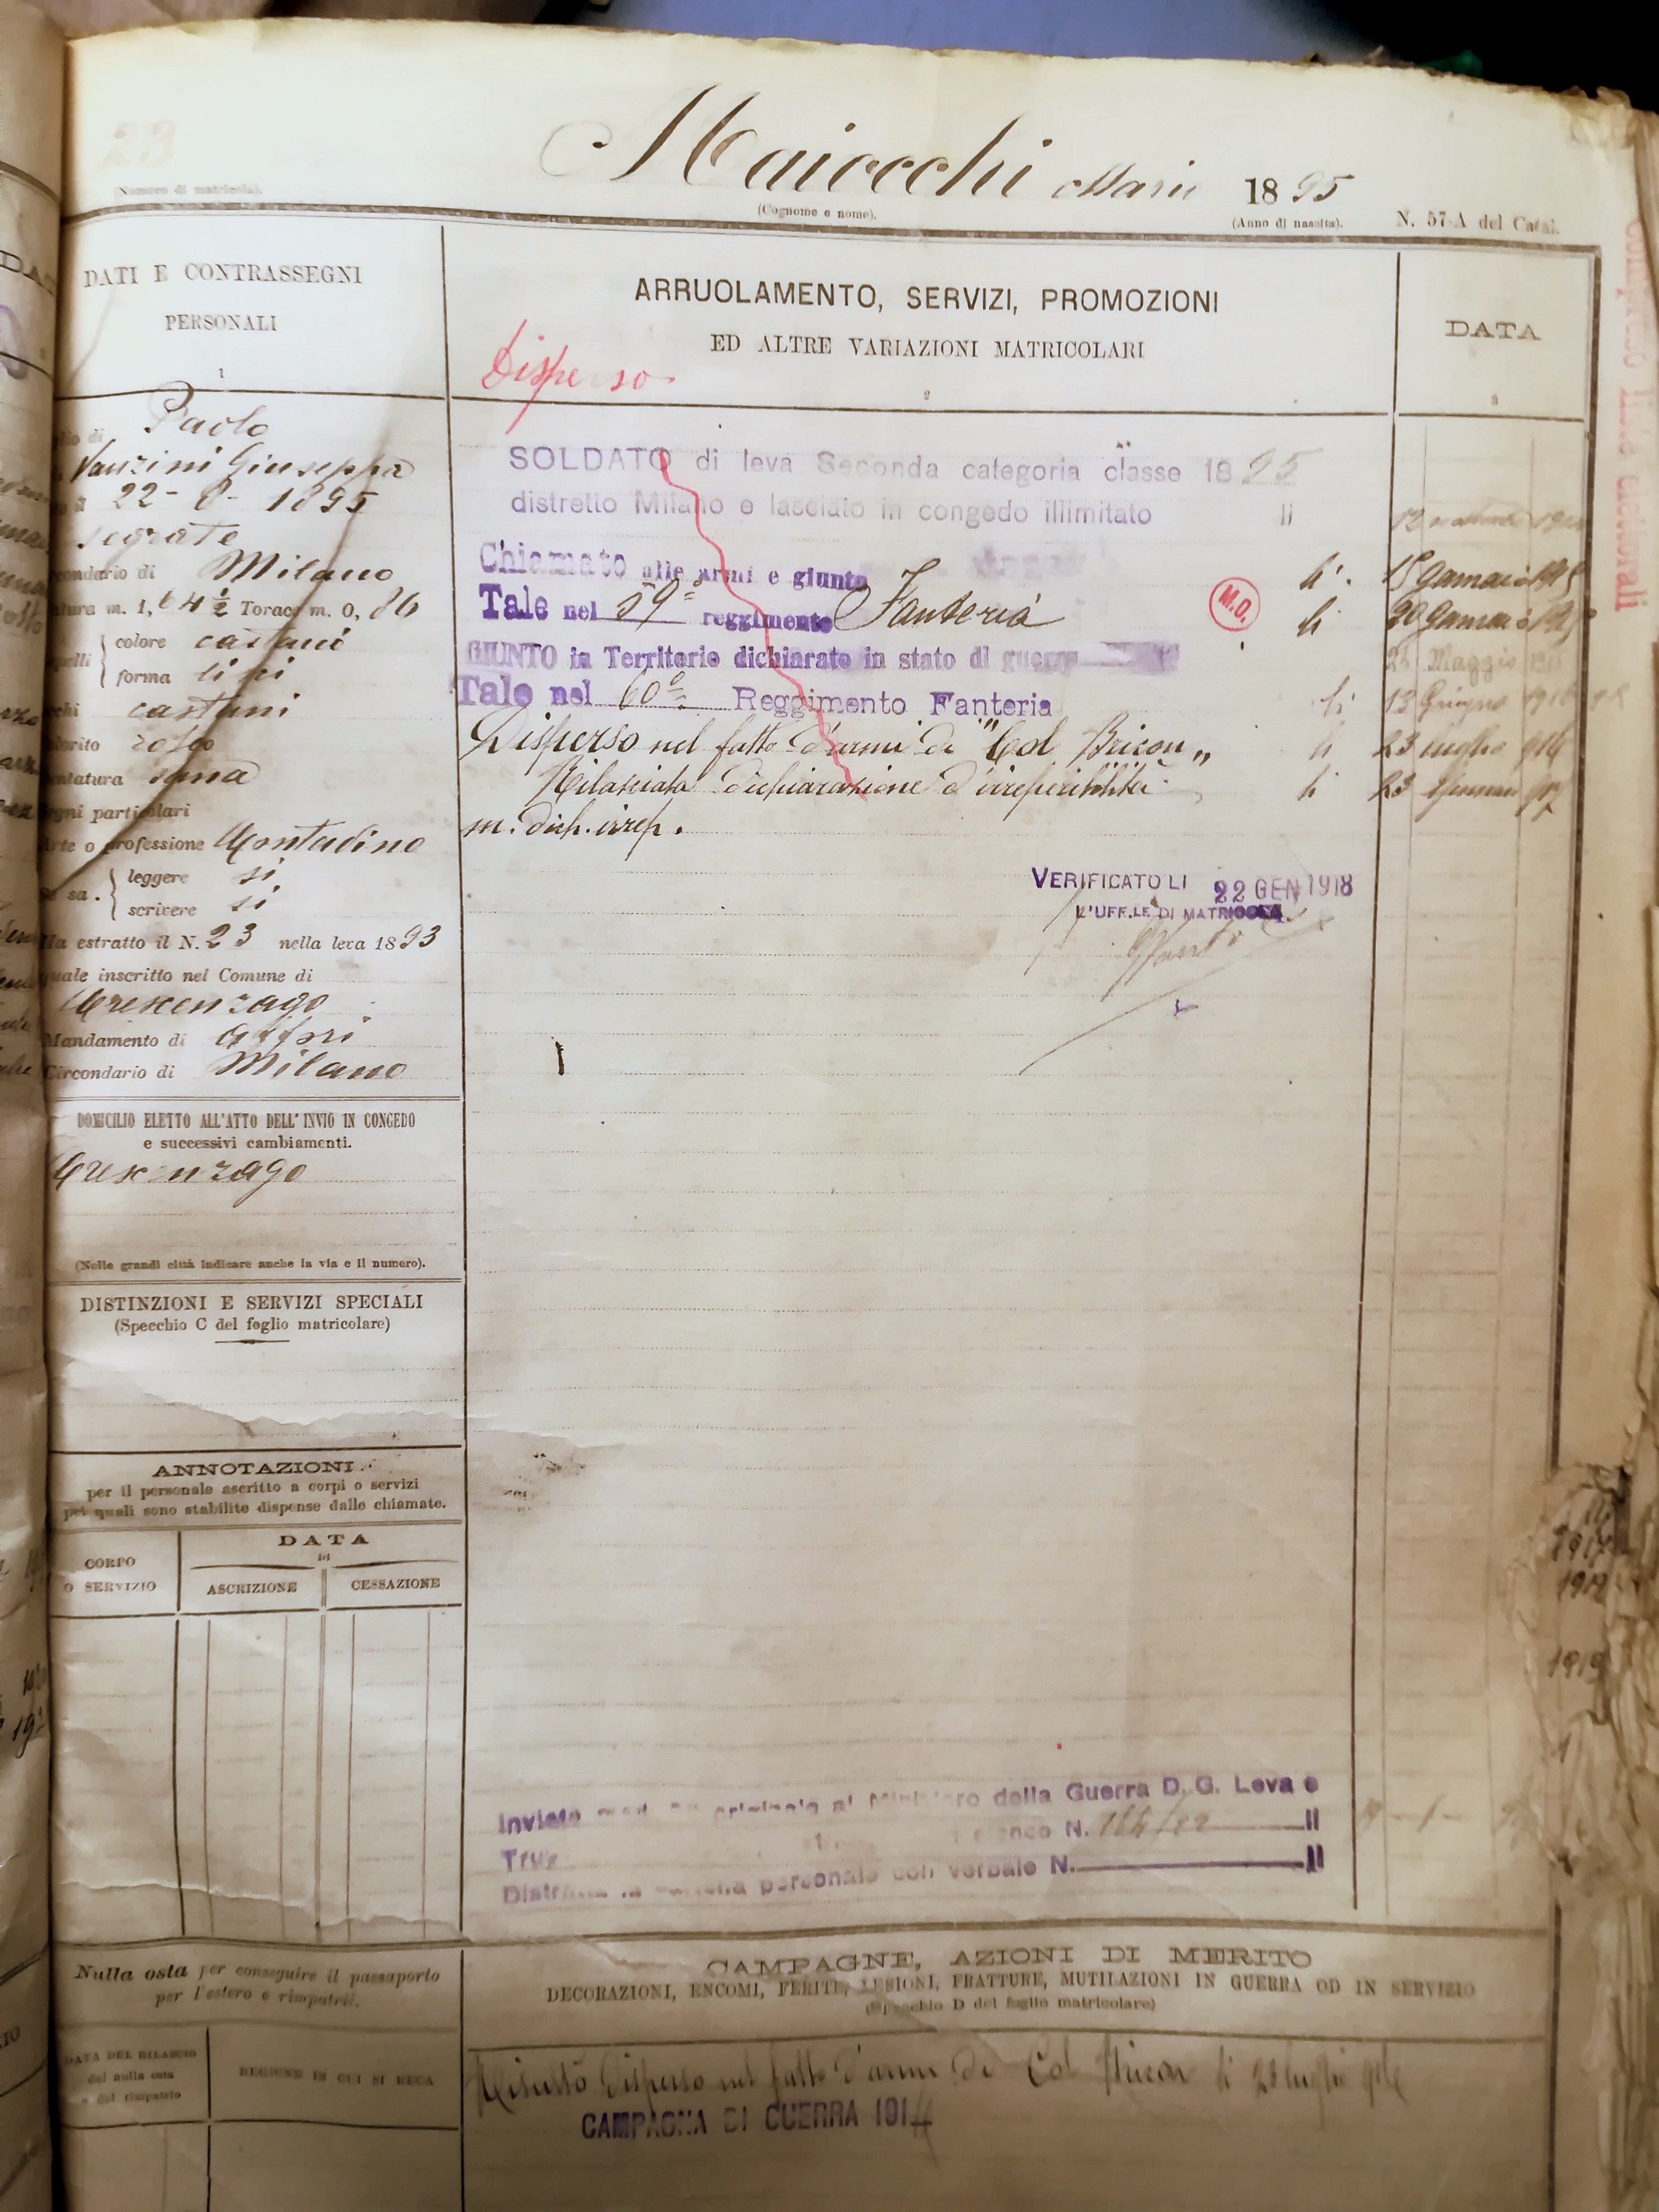 28
(Numero di matricola).
Maiocchi Mario 1895
(Cognome e nome).
(Anno di nascita).
N. 57-A del Catal.
DATI E CONTRASSEGNI
PERSONALI
1
Paolo
Vanzini Giuseppa
22 - 8 - 1895
Segrate
condario di Milano
tura m. 1, 64 ½ Torace m. 0, 86
colore castani
forma lisci
castani
lorito roseo
entatura sana
egni particolari
rte o professione Contadino
sa. leggere si
scrivere si
a estratto il N. 23 nella leva 1893
uale inscritto nel Comune di
Crescenzago
Mandamento di Affori
Circondario di Milano
DOMICILIO ELETTO ALL'ATTO DELL'INVIO IN CONGEDO
e successivi cambiamenti.
Crescenzago
(Nelle grandi città indicare anche la via e il numero).
DISTINZIONI E SERVIZI SPECIALI
(Specchio C del foglio matricolare)
ANNOTAZIONI
per il personale ascritto a corpi o servizi
pei quali sono stabilite dispense dalle chiamate.
CORPO
O SERVIZIO
DATA
DI
ASCRIZIONE
CESSAZIONE
Nulla osta per conseguire il passaporto
per l'estero e rimpatrii.
DATA DEL RILASCIO
del nulla osta
e del rimpatrio
REGIONE IN CUI SI RECA
ARRUOLAMENTO, SERVIZI, PROMOZIONI
ED ALTRE VARIAZIONI MATRICOLARI
Disperso
2
DATA
3
SOLDATO di leva Seconda categoria classe 1895
distretto Milano e lasciato in congedo illimitato li 12
Chiamato alle armi e giunto li 15 Gennaio 1915
Tale nel 59° reggimento Fanteria M.O. li 20 Gennaio 1915
GIUNTO in Territorio dichiarato in stato di guerra Maggio 1915
Tale nel 60° Reggimento Fanteria li 13 Giugno 1916
Disperso nel fatto d'armi di "Col Bricon" li 23 luglio 916
Rilasciata dichiarazione d'irreperibilità li 23 Gennaio 917
m. dich. irrep.
VERIFICATO LI 22 GEN 1918
L'UFF.LE DI MATRICOLA
Inviato originale al Ministero della Guerra D. G. Leva e
Tru elenco N. 164/22 li
Distrutta la cartella personale con verbale N. li
CAMPAGNE, AZIONI DI MERITO
DECORAZIONI, ENCOMI, FERITE, LESIONI, FRATTURE, MUTILAZIONI IN GUERRA OD IN SERVIZIO
(Specchio D del foglio matricolare)
Disperso nel fatto d'armi di Col Bricon li 23 luglio 916
CAMPAGNA DI GUERRA 191